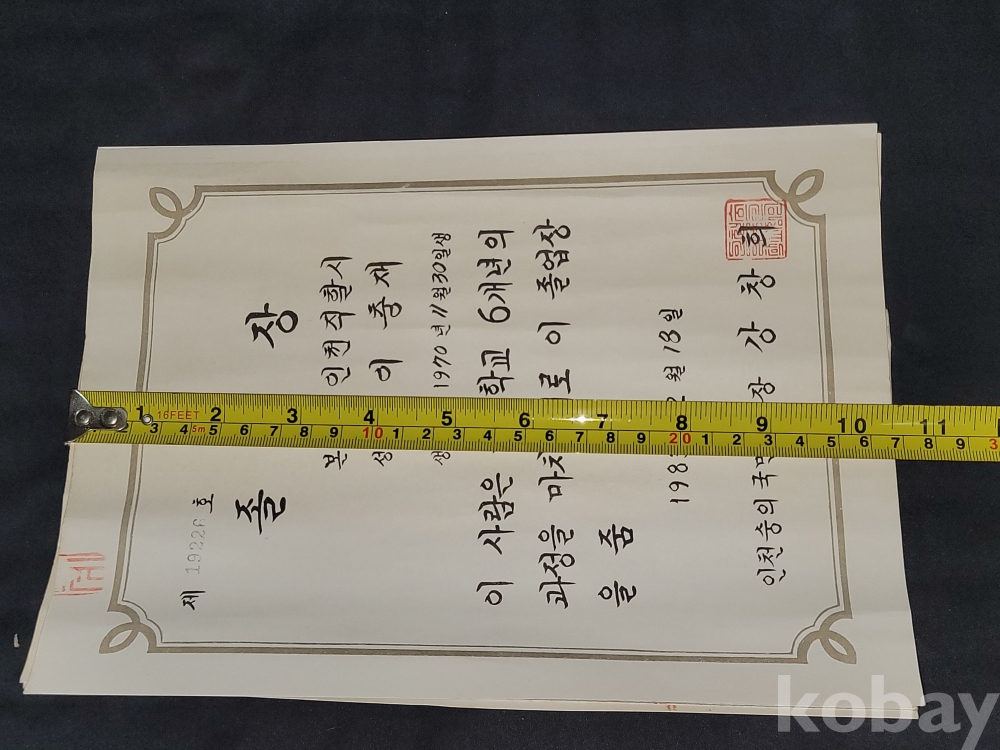 제 19226 호
졸 장
본 인천직할시
성 이중재
생 1970년 11월 30일생
이 사람은 학교 6개년의
과정을 마치 로 이 졸업장
을 줌
198 월 18일
인천숭의국민 장 강창희
16FEET
5m
1 2 3 4 5 6 7 8 9 10 11
3 4 5 6 7 8 9 10 1 2 3 4 5 6 7 8 9 20 1 2 3 4 5 6 7 8 9 3
kobay